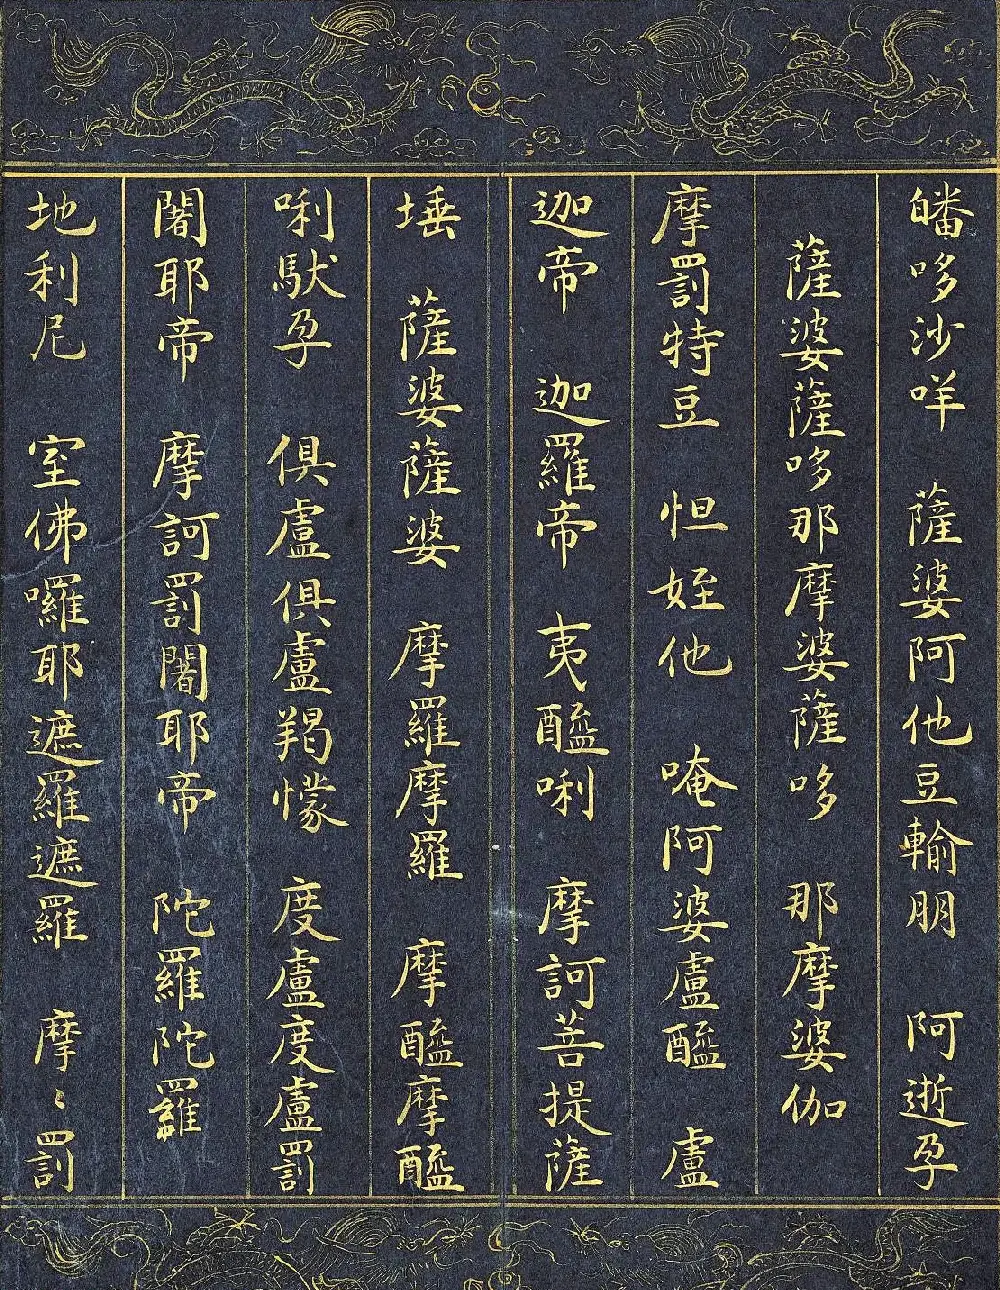 皤哆沙咩　薩婆阿他豆輸朋　阿逝孕
薩婆薩哆那摩婆薩哆　那摩婆伽
摩罰特豆　怛姪他　唵阿婆盧醯　盧
迦帝　迦羅帝　夷醯唎　摩訶菩提薩
埵　薩婆薩婆　摩羅摩羅　摩醯摩醯
唎馱孕　俱盧俱盧羯懞　度盧度盧罰
闍耶帝　摩訶罰闍耶帝　陀羅陀羅
地利尼　室佛囉耶遮羅遮羅　摩〻罰